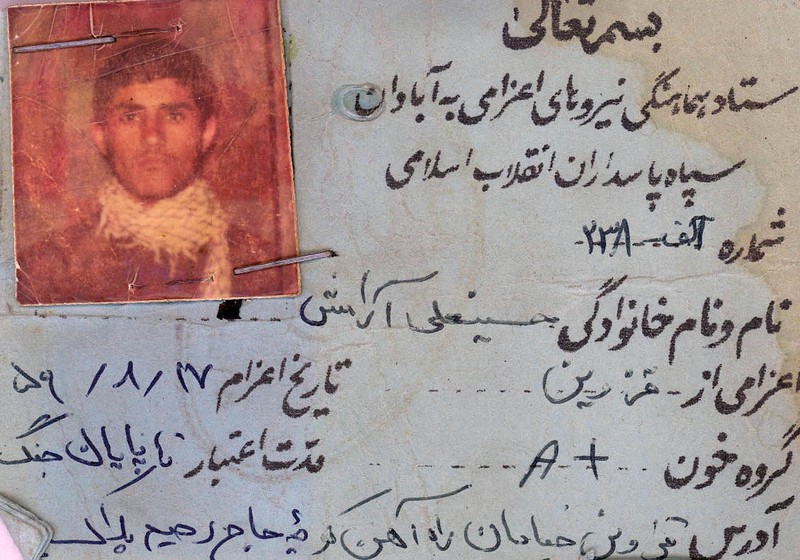 بسمه تعالی
ستاد هماهنگی نیروهای اعزامی به آبادان
سپاه پاسداران انقلاب اسلامی
شماره الف - ۲۳۸
نام و نام خانوادگی حسینعلی آرامش
اعزامی از - قزوین تاریخ اعزام ۱۷ / ۸ / ۵۹
گروه خون A + مدت اعتبار تا پایان جنگ
آدرس قزوین خیابان راه آهن کوچه حاج رحیم پلاک